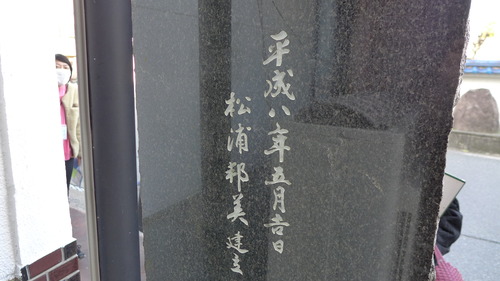 平成八年五月吉日
松浦邦美建立